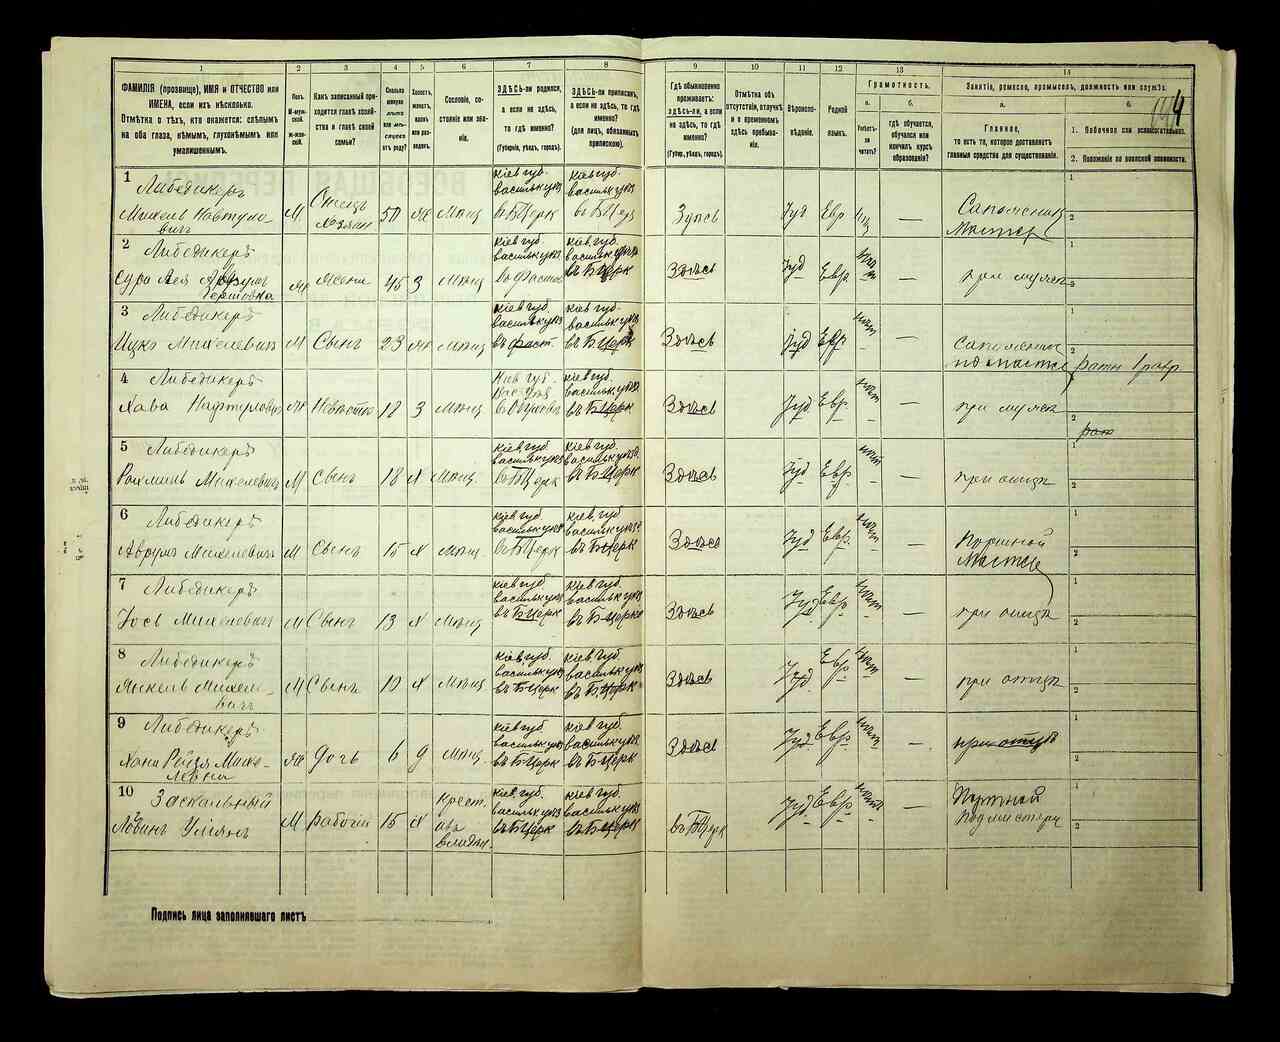 1 2 3 4 5 6 7 8 9 10 11 12 13 14
ФАМИЛІЯ (прозвище), ИМЯ и ОТЧЕСТВО или
ИМЕНА, если ихъ нѣсколько.
Отмѣтка о тѣхъ, кто окажется: слѣпымъ
на оба глаза, нѣмымъ, глухонѣмымъ или
умалишеннымъ.
Полъ.
М-муж-
ской.
Ж-жен-
скій.
Какъ записанный при-
ходится главѣ хозяй-
ства и главѣ своей
семьи?
Сколько
минуло
лѣтъ
или мѣ-
сяцевъ
отъ роду?
Холостъ,
женатъ,
вдовъ
или раз-
веденъ.
Сословіе, со-
стояніе или зва-
ніе.
ЗДѢСЬ-ли родился,
а если не здѣсь,
то гдѣ именно?
(Губернія, уѣздъ, городъ).
ЗДѢСЬ-ли приписанъ,
а если не здѣсь, то гдѣ
именно?
(для лицъ, обязанныхъ
припискою).
Гдѣ обыкновенно
проживаетъ:
здѣсь-ли, а если
не здѣсь, то гдѣ
именно?
(Губер., уѣздъ, городъ).
Отмѣтка объ
отсутствіи, отлучкѣ
и о временномъ
здѣсь пребыва-
ніи.
Вѣроиспо-
вѣданіе.
Родной
языкъ.
Грамотность.
а.
Умѣетъ-
ли
читать?
б.
гдѣ обучается,
обучался или
кончилъ курсъ
образованія?
Занятіе, ремесло, промыселъ, должность или служба.
а.
Главное,
то есть то, которое доставляетъ
главныя средства для существованія.
б.
1. Побочное или вспомогательное.
2. Положеніе по воинской повинности.
4
1 Либедикеръ
Михель Нафтуло-
вичъ М Отецъ хозяин 50 ж Мѣщ
Кіев губ. васильк уѣз въ БЦерк
Кіев губ. васильк уѣз въ БЦер
Здѣсь Іуд Евр —
Сапожный мастер
2 Либедикеръ
Сура Лея
Гершовна ж жена 45 З Мѣщ
Кіев губ. васильк уѣз въ Фастов
Кіев губ. васильк уѣз въ БЦерк
Здѣсь Іуд Евр. нѣт —
при мужѣ
3 Либедикеръ
Ицко Михелевич М Сынъ 23 ж Мѣщ
Кіев губ. васильк уѣз въ Фаст.
Кіев губ. васильк уѣз въ БЦерк
Здѣсь Іуд Евр нѣт —
Сапожный
подмастер ратн 1 разр
4 Либедикеръ
Хава Нафтулович ж Невѣстка 18 З Мѣщ
Кіев губ. въ Обухов
Кіев губ. васильк уѣз въ БЦерк
Здѣсь Іуд Евр. нѣт —
при мужѣ
5 Либедикеръ
Рахмиль Михелевич М Сынъ 18 х Мѣщ.
Кіев губ. васильк уѣз въ БЦерк
Кіев губ. васильк уѣз въ БЦерк
Здѣсь Іуд Евр нѣт —
при отцѣ
6 Либедикеръ
Аврумъ Михелевич М Сынъ 15 х Мѣщ.
Кіев губ. васильк уѣз въ БЦерк
Кіев губ. васильк уѣз въ БЦерк
Здѣсь Іуд Евр. нѣт —
мастер
7 Либедикеръ
Іось Михелевич М Сынъ 13 х Мѣщ
Кіев губ. васильк уѣз въ БЦерк
Кіев губ. васильк уѣз въ БЦерк
Здѣсь Іуд Евр нѣт —
при отцѣ
8 Либедикеръ
Янкель Михеле-
вичъ М Сынъ 10 х Мѣщ
Кіев губ. васильк уѣз въ БЦерк
Кіев губ. васильк уѣз въ БЦерк
Здѣсь Іуд Евр. нѣт —
при отцѣ
9 Либедикеръ
Хана Рейзя Михе-
левна ж дочь 6 д Мѣщ
Кіев губ васильк уѣз въ БЦерк
Кіев губ васильк уѣз въ БЦерк
Здѣсь Іуд Евр. нѣт —
при отцѣ
10 Заскальный
М рабочій 15 х Крест.
Кіев губ. васильк уѣз въ БЦерк
Кіев губ. васильк уѣз въ БЦерк
въ БЦерк Іуд Евр. нѣт —
подмастери
Подпись лица заполнявшаго листъ